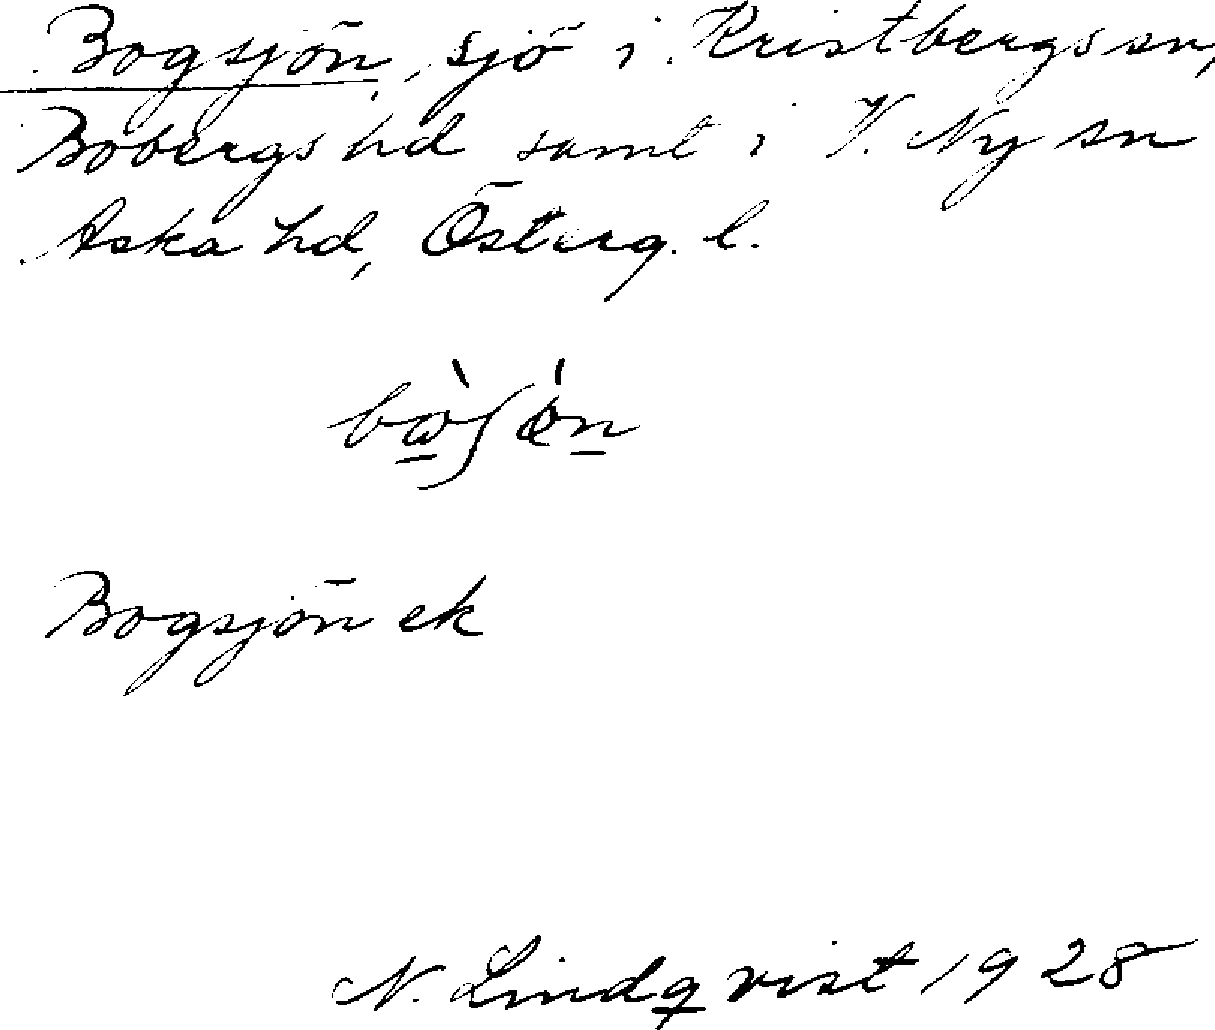 Bogsjön, sjö i Kristbergs sn,
Bobergs hd samt i V. Ny sn
Aska hd, Österg. l.
Bogsjön ek
N. Lindqvist 1928